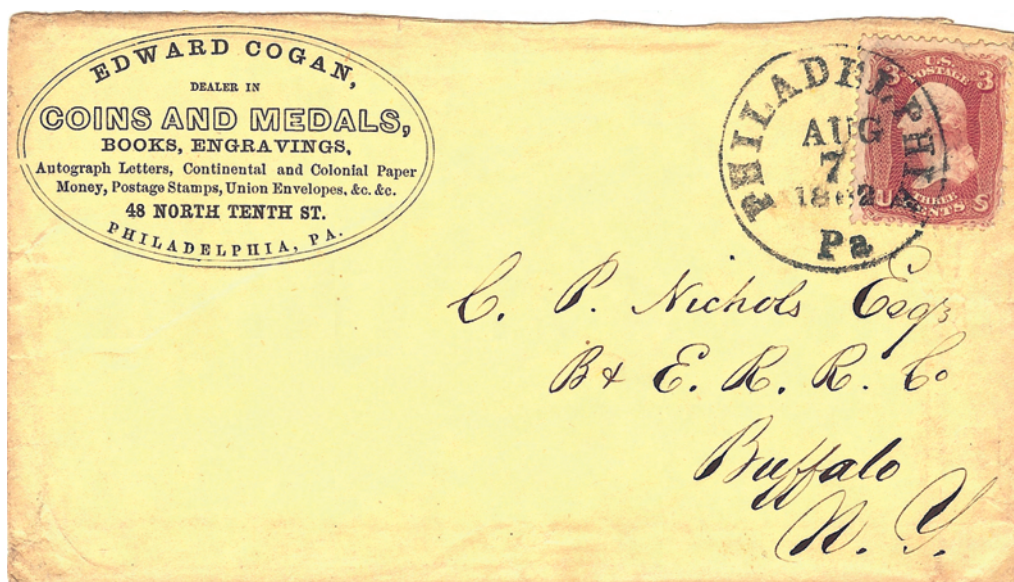 EDWARD COGAN,
DEALER IN
COINS AND MEDALS,
BOOKS, ENGRAVINGS,
Autograph Letters, Continental and Colonial Paper
Money, Postage Stamps, Union Envelopes, &c. &c.
48 NORTH TENTH ST.
PHILADELPHIA, PA.
PHILADELPHIA
AUG
7
1862
Pa
U.S.
POSTAGE
3 3
THREE
CENTS
U S
C. P. Nichols Esqr
B & E. R. R. Co
Buffalo
N. Y.